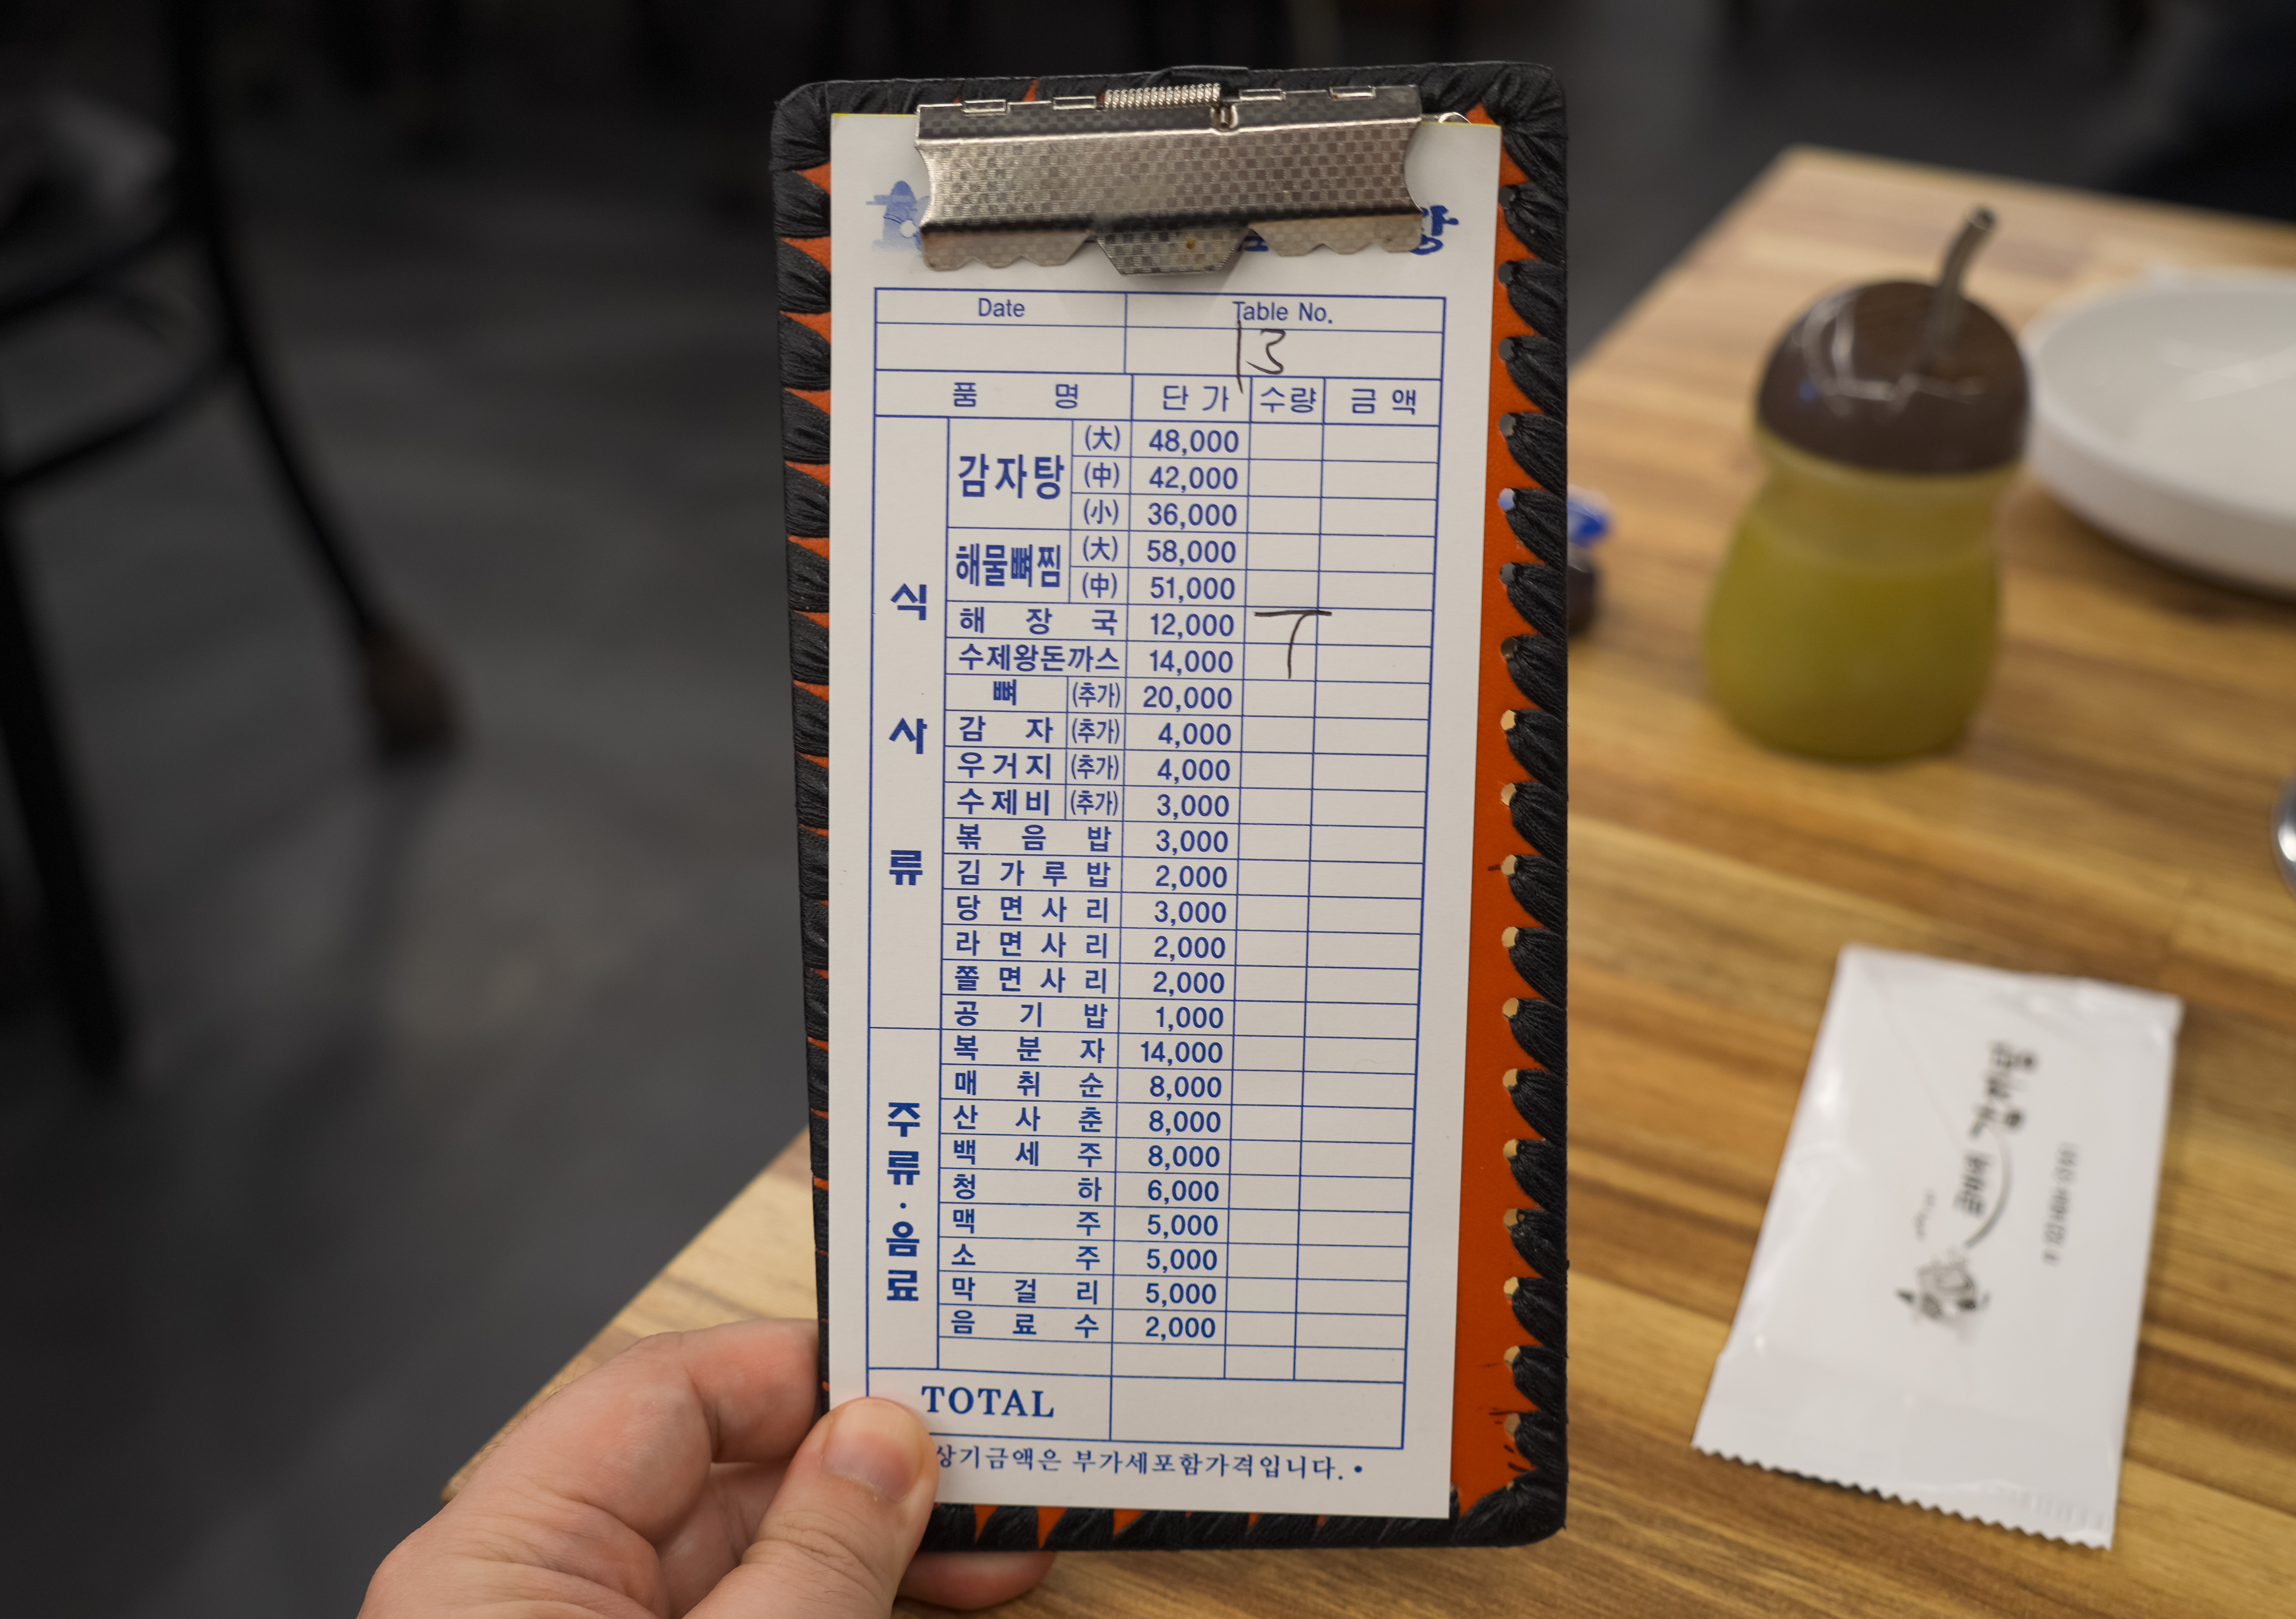 탕
Date Table No.
13
품 명 단 가 수량 금 액
식사류
감자탕 (大) 48,000
(中) 42,000
(小) 36,000
해물뼈찜 (大) 58,000
(中) 51,000
해 장 국 12,000 T
수제왕돈까스 14,000
뼈 (추가) 20,000
감 자 (추가) 4,000
우거지 (추가) 4,000
수제비 (추가) 3,000
볶 음 밥 3,000
김 가 루 밥 2,000
당 면 사 리 3,000
라 면 사 리 2,000
쫄 면 사 리 2,000
공 기 밥 1,000
주류·음료
복 분 자 14,000
매 취 순 8,000
산 사 춘 8,000
백 세 주 8,000
청 하 6,000
맥 주 5,000
소 주 5,000
막 걸 리 5,000
음 료 수 2,000
TOTAL
상기금액은 부가세포함가격입니다. •